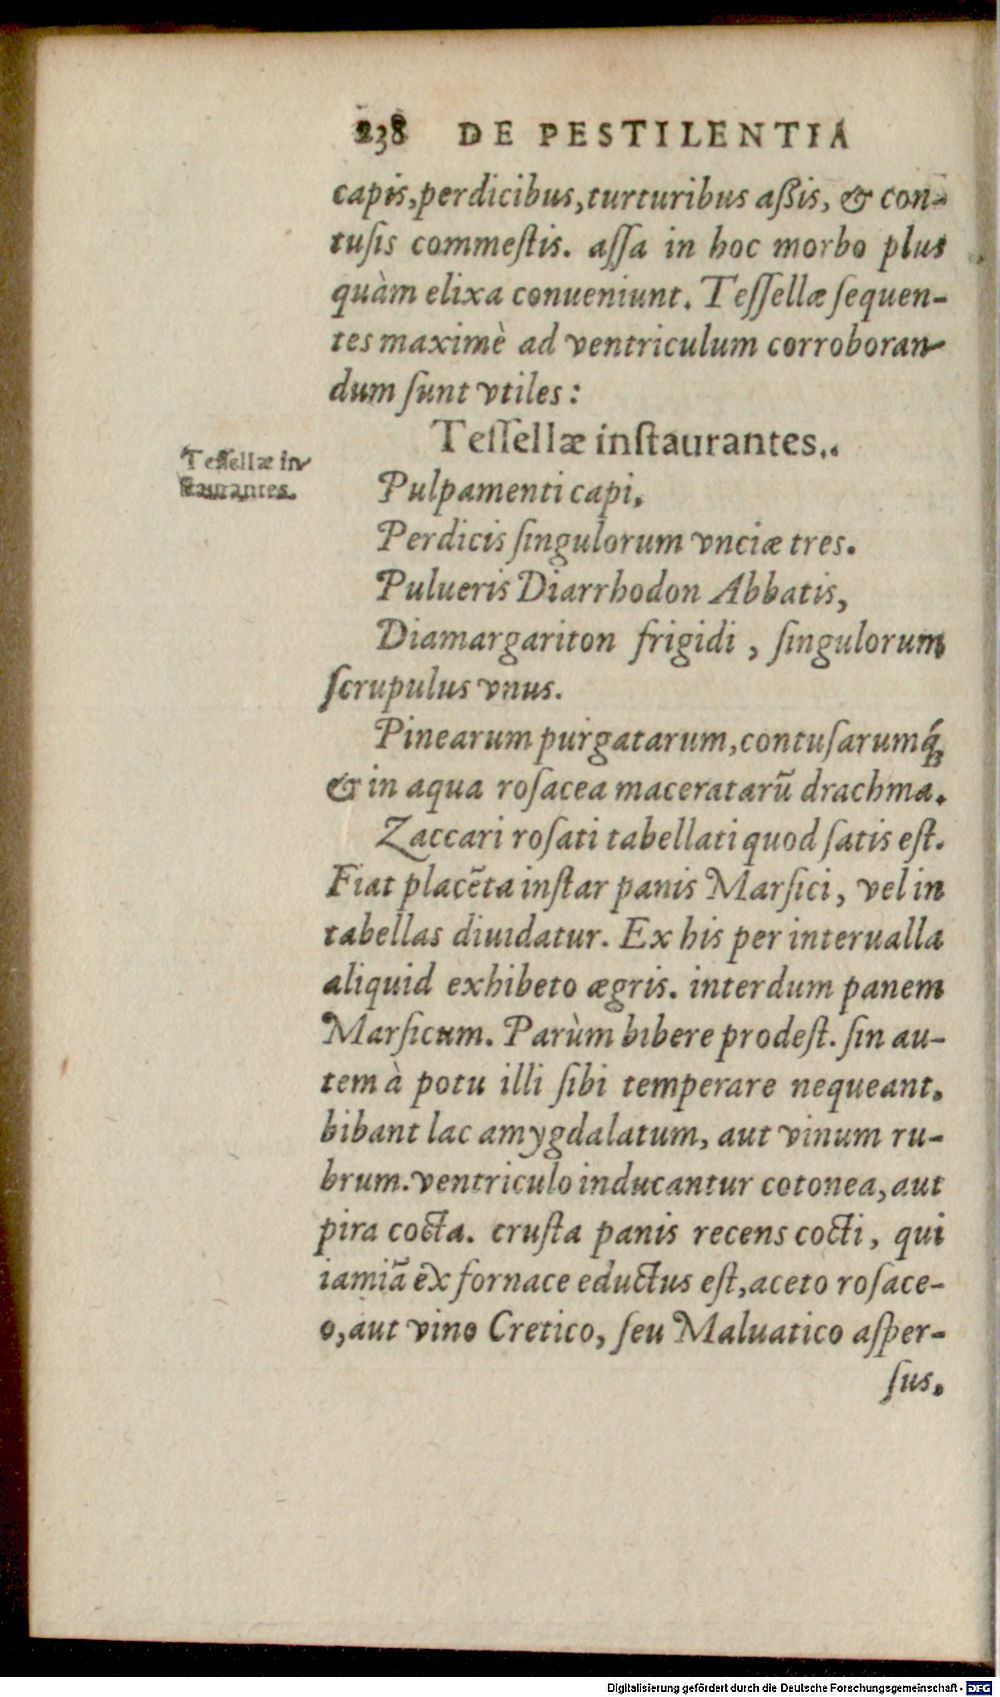 238 DE PESTILENTIA
capis, perdicibus, turturibus aſsis, & con-
tuſis commeſtis. aſſa in hoc morbo plus
quàm elixa conueniunt. Teſſellæ ſequen-
tes maximè ad ventriculum corroboran-
dum ſunt vtiles:
Teſſellæ inſtaurantes.
Teſſellæ in-
ſtaurantes.
Pulpamenti capi,
Perdicis ſingulorum vnciæ tres.
Pulueris Diarrhodon Abbatis,
Diamargariton frigidi, ſingulorum
ſcrupulus vnus.
Pinearum purgatarum, contuſarumq́;
& in aqua roſacea maceratarũ drachma.
Zaccari roſati tabellati quod ſatis eſt.
Fiat placẽta inſtar panis Marſici, vel in
tabellas diuidatur. Ex his per interualla
aliquid exhibeto ægris. interdum panem
Marſicum. Parùm bibere prodeſt. ſin au-
tem à potu illi ſibi temperare nequeant,
bibant lac amygdalatum, aut vinum ru-
brum. ventriculo inducantur cotonea, aut
pira cocta. cruſta panis recens cocti, qui
iamiã ex fornace eductus eſt, aceto roſace-
o, aut vino Cretico, ſeu Maluatico aſper-
ſus.
Digitalisierung gefördert durch die Deutsche Forschungsgemeinschaft - DFG